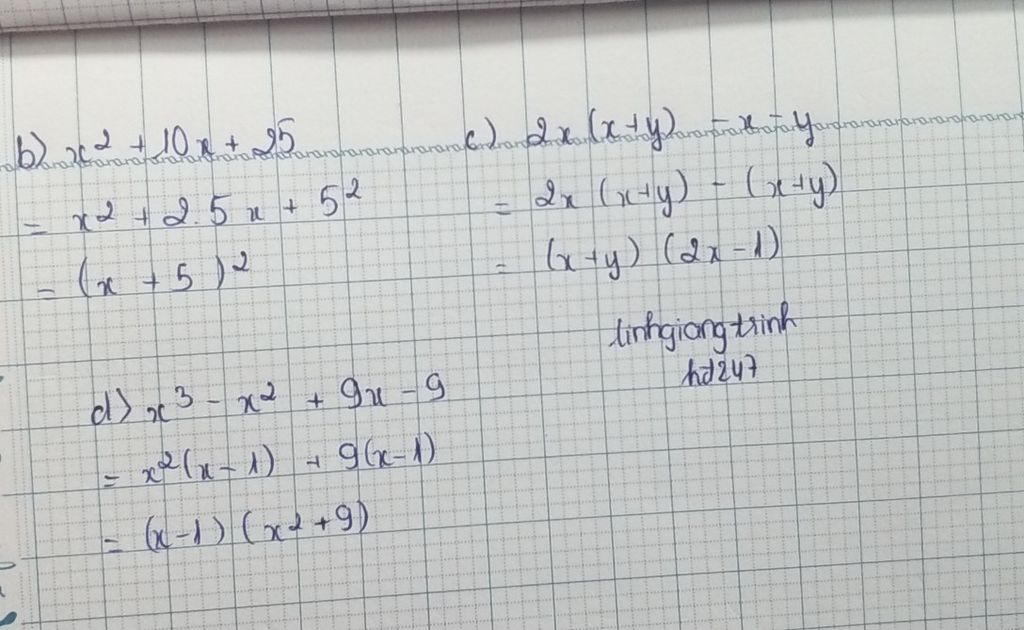 b) x² + 10x + 25
= x² + 2.5x + 5²
= (x + 5)²
c) 2x(x+y) - x - y
= 2x(x+y) - (x+y)
= (x+y)(2x-1)
linhgiangtrinh
hd247
d) x³ - x² + 9x - 9
= x²(x-1) + 9(x-1)
= (x-1)(x²+9)